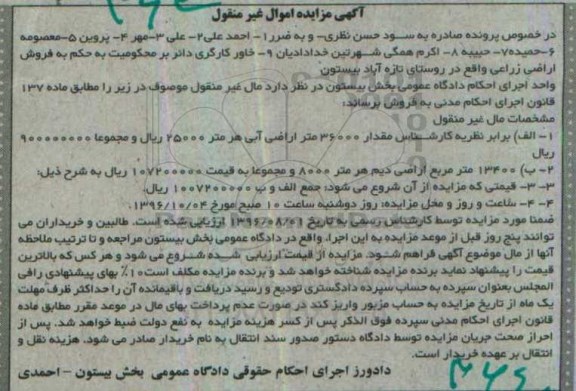 آگهی مزایده اموال غیر منقول
در خصوص پرونده صادره به سود حسن نظری- و به ضرر ۱- احمد علی ۲- علی ۳- مهر ۴- پروین ۵- معصومه
۶- حمیده ۷- حبیبه ۸- اکرم همگی شهرتین خدادادیان ۹- خاور کارگری دائر بر محکومیت به حکم به فروش
اراضی زراعی واقع در روستای تازه آباد بیستون
واحد اجرای احکام دادگاه عمومی بخش بیستون در نظر دارد مال غیر منقول موصوف در زیر را مطابق ماده ۱۳۷
قانون اجرای احکام مدنی به فروش برساند:
مشخصات مال غیر منقول
۱- الف) برابر نظریه کارشناس مقدار ۳۶۰۰۰ متر اراضی آبی هر متر ۲۵۰۰۰ ریال و مجموعا ۹۰۰۰۰۰۰۰۰
ریال
۲- ب) ۱۳۴۰۰ متر مربع اراضی دیم هر متر ۸۰۰۰ و مجموعا به قیمت ۱۰۷۲۰۰۰۰۰ ریال به شرح ذیل:
۳- ۳- قیمتی که مزایده از آن شروع می شود: جمع الف و ب ۱۰۰۷۲۰۰۰۰۰ ریال.
۴- ۴- ساعت و روز و محل مزایده: روز دوشنبه ساعت ۱۰ صبح مورخ ۱۳۹۶/۱۰/۰۴.
ضمنا مورد مزایده توسط کارشناس رسمی به تاریخ ۱۳۹۶/۰۸/۰۱ ارزیابی شده است. طالبین و خریداران می
توانند پنج روز قبل از موعد مزایده به این اجرا، واقع در دادگاه عمومی بخش بیستون مراجعه و تا ترتیب ملاحظه
آنها از مال موضوع آگهی فراهم شود. مزایده از قیمت ارزیابی شده شروع می شود و هر کس که بالاترین
قیمت را پیشنهاد نماید برنده مزایده شناخته خواهد شد و برنده مزایده مکلف است ۱۰٪ بهای پیشنهادی را فی
المجلس بعنوان سپرده به حساب سپرده دادگستری تودیع و رسید دریافت و باقیمانده آن را حداکثر ظرف مهلت
یک ماه از تاریخ مزایده به حساب مزبور واریز کند در صورت عدم پرداخت بهای مال در موعد مقرر مطابق ماده
قانون اجرای احکام مدنی سپرده فوق الذکر پس از کسر هزینه مزایده به نفع دولت ضبط خواهد شد. پس از
احراز صحت جریان مزایده توسط دادگاه دستور صدور سند انتقال به نام خریدار صادر می شود. هزینه نقل و
انتقال بر عهده خریدار است.
دادورز اجرای احکام حقوقی دادگاه عمومی بخش بیستون - احمدی